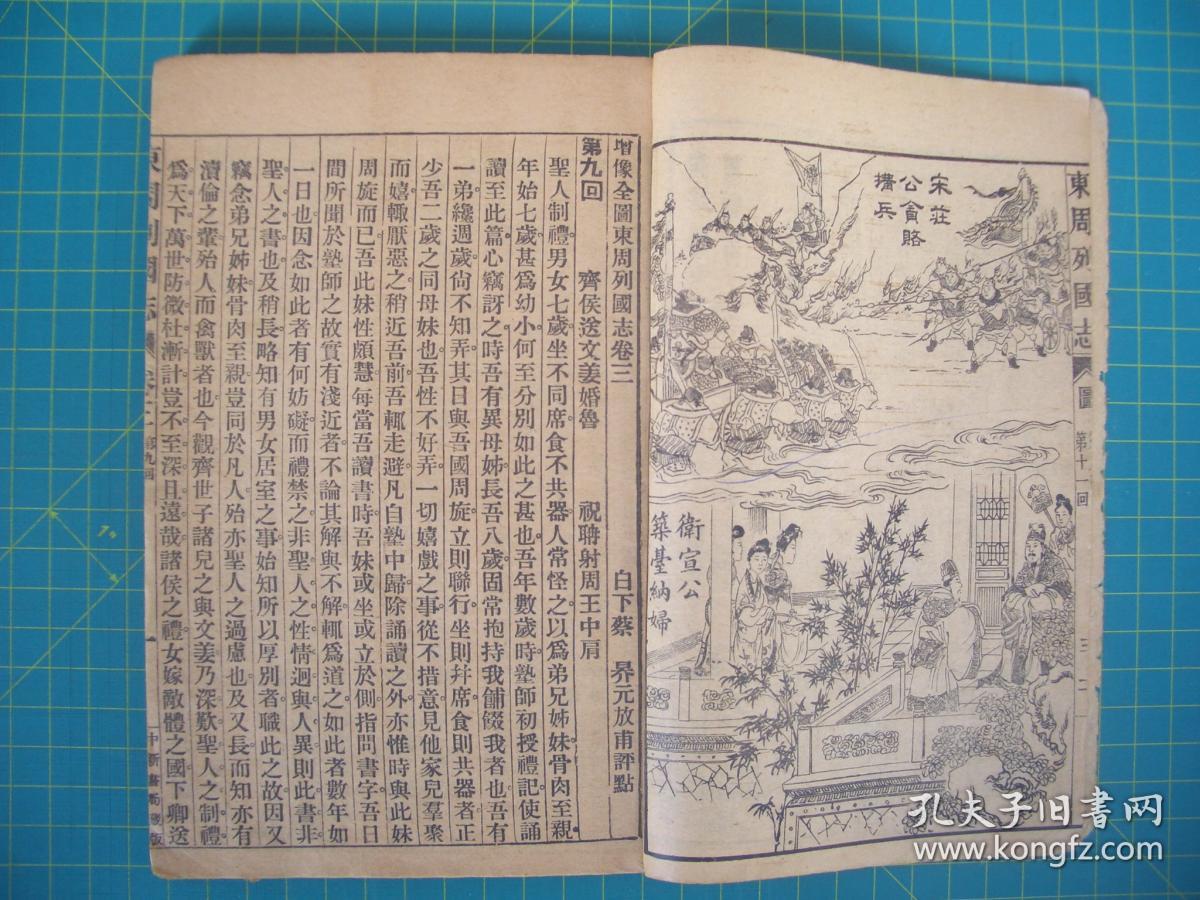 東周列國志 圖 第十一回
宋莊
公貪賂
搆兵
衛宣公
築臺納婦
增像全圖東周列國志卷三
白下蔡 昇元放甫評點
第九回 齊侯送文姜婚魯 祝聃射周王中肩
聖人制禮男女七歲坐不同席食不共器人常怪之以爲弟兄姊妹骨肉至親
年始七歲甚爲幼小何至分別如此之甚也吾年數歲時塾師初授禮記使誦
讀至此篇心竊訝之時吾有異母姊長吾八歲固常抱持我餔餟我者也吾有
一弟纔週歲尙不知弄其日與吾國周旋立則聯行坐則幷席食則共器者正
少吾二歲之同母妹也吾性不好弄一切嬉戲之事從不措意見他家兒羣聚
而嬉輒厭惡之稍近吾前吾輒走避凡自塾中歸除誦讀之外亦惟時與此妹
周旋而已吾此妹性頗慧每當吾讀書時吾妹或坐或立於側指問書字吾日
間所聞於塾師之故實有淺近者不論其解與不解輒爲道之如此者數年如
一日也因念如此者有何妨礙而禮禁之非聖人之性情迥與人異則此書非
聖人之書也及稍長略知有男女居室之事始知所以厚別者職此之故因又
竊念弟兄姊妹骨肉至親豈同於凡人殆亦聖人之過慮也及又長而知亦有
瀆倫之輩殆人而禽獸者也今觀齊世子諸兒之與文姜乃深歎聖人之制禮
爲天下萬世防微杜漸計豈不至深且遠哉諸侯之禮女嫁敵體之國下卿送
東周列國志 第九回 一
孔夫子旧书网
www.kongfz.com